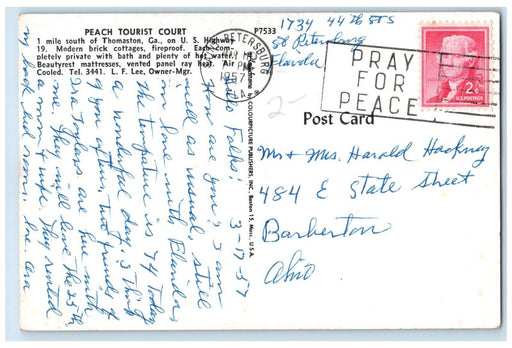 PEACH TOURIST COURT
1 mile south of Thomaston, Ga., on U. S. Highway
19. Modern brick cottages, fireproof. Each com-
pletely private with bath and plenty of hot water.
Beautyrest mattresses, vented panel ray heat. Air
Cooled. Tel. 3441. L. F. Lee, Owner-Mgr.
P7533
1734 44th St S
St Petersburg
Florida
ST. PETERSBURG
PM
1957
FLA.
PRAY
FOR
PEACE
2¢
U.S. POSTAGE
2-
Post Card
COLOURPICTURE PUBLISHERS, INC., Boston 15, Mass., U.S.A.
Mr & Mrs. Harald Hackney
484 E State Street
Barberton
Ohio
3-17-57
Hello Folks:
How are you? I am
well as usual, still
in love with Florida,
The temperature is 74 today
a wonderful day. I think
of you often, two friends of
are here with
me. They will leave the 25th
a man & wife. They rented
my back bed room, he